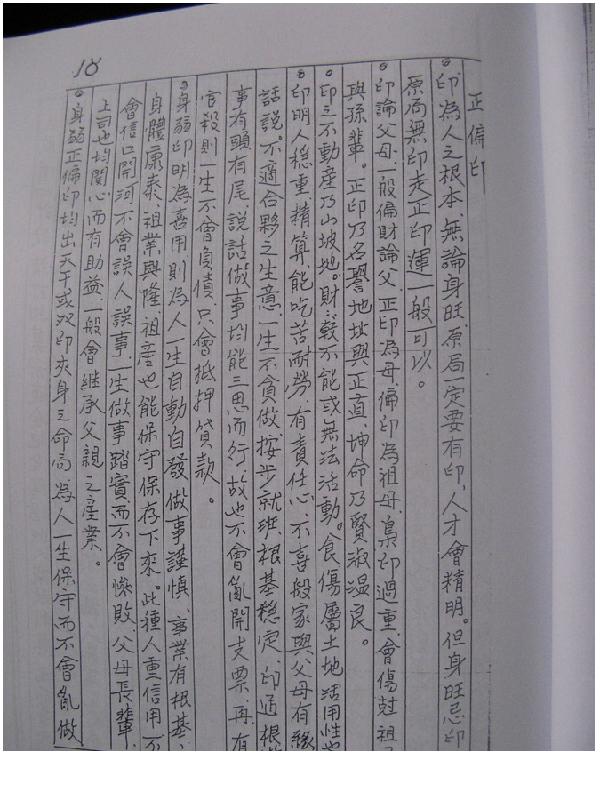 18
正偏印
印為人之根本、無論身旺、原局一定要有印、人才會精明。但身旺忌印
原局無印走正印運一般可以。
印論父母、一般偏財論父、正印為母、偏印為祖母、梟印過重、會傷尅祖
與孫輩。正印乃名譽地址與正直、坤命乃賢淑溫良。
印三不動產乃山坡地。財較不能或無法活動。食傷屬土地活用性
印明人穩重、精算能吃苦耐勞、有責任心、不喜搬家與父母有緣
話說。不適合夥之生意、一生不貪做按步就班、根基穩定、印通根
事有頭有尾、說話做事均能三思而行、故也不會亂開支票、再有
官殺則一生不會負債、只會抵押貸款。
身弱印明為喜用則為人一生自動自發做事謹慎、事業有根基、
身體康泰、祖業興隆、祖產也能保守保存下來。此種人重信用、不
會信口開河不會誤人誤事、一生做事踏實、而不會慘敗、父母長輩、
上司也均関心而有助益、一般會継承父親之產業。
身弱正偏印均出天干或双印夾身之命局、為人一生保守而不會亂做